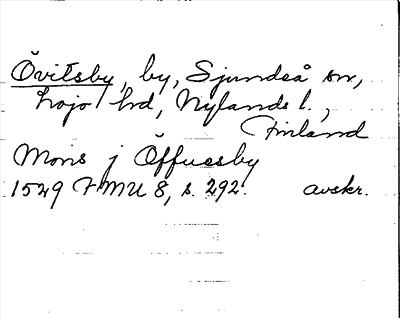 Övitsby, by, Sjundeå sn,
Lojo hd, Nylands l.,
Finland
Mons j Öffuesby
1549 FMU 8, s. 292. avskr.